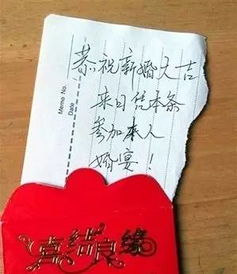 恭祝新婚大吉
来日凭本条
参加本人
婚宴！
Memo No.
Date
喜结良缘